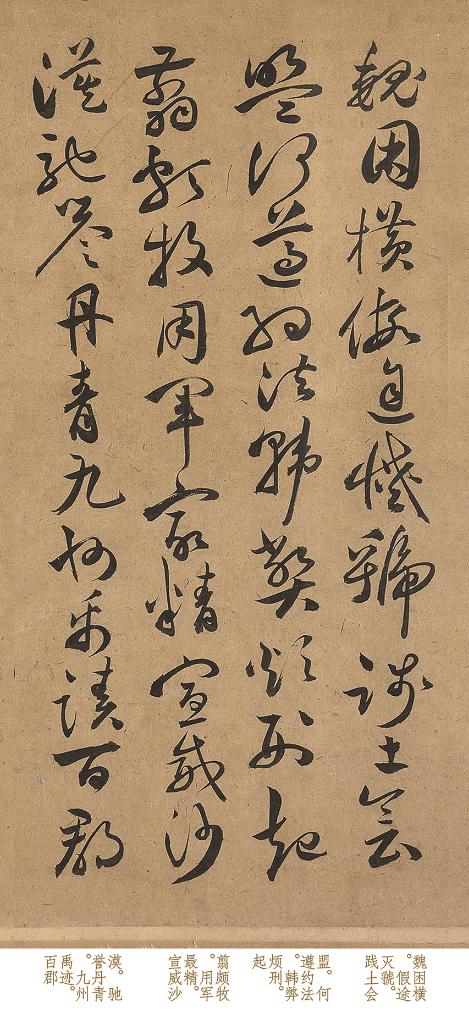 魏困橫假途滅虢踐土會
盟何遵約法韓弊煩刑起
翦頗牧用軍最精宣威沙
漠馳譽丹青九州禹蹟百郡
魏困横
。假途
灭虢。
践土会
盟。何
遵约法
。韩弊
烦刑。
起
翦颇牧
。用军
最精。
宣威沙
漠。驰
誉丹青
。九州
禹迹。
百郡